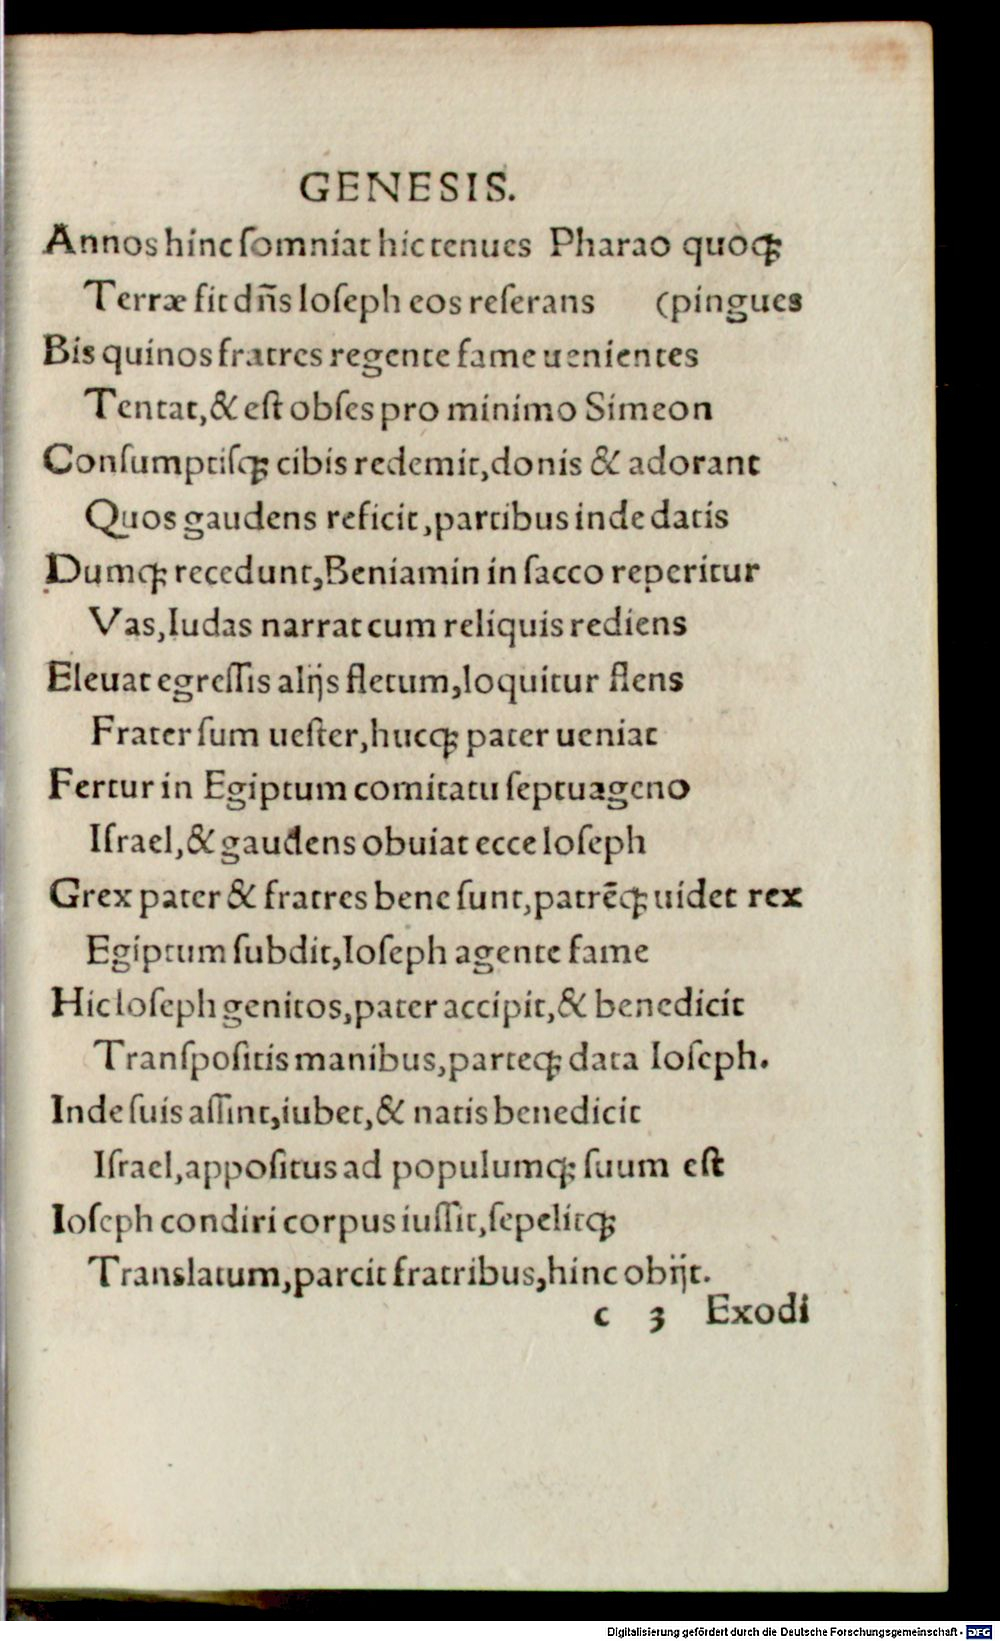 GENESIS.
Annos hinc ſomniat hic tenues Pharao quoqꝫ
Terræ fit dn̄s Ioſeph eos reſerans (pingues
Bis quinos fratres regente fame uenientes
Tentat,& eſt obſes pro minimo Simeon
Conſumptiſqꝫ cibis redemit,donis & adorant
Quos gaudens reficit,partibus inde datis
Dumqꝫ recedunt,Beniamin in ſacco reperitur
Vas,Iudas narrat cum reliquis rediens
Eleuat egreſſis alijs fletum,loquitur flens
Frater ſum ueſter,hucqꝫ pater ueniat
Fertur in Egiptum comitatu ſeptuageno
Iſrael,& gaudens obuiat ecce Ioſeph
Grex pater & fratres bene ſunt,patrēqꝫ uidet rex
Egiptum ſubdit,Ioſeph agente fame
Hic Ioſeph genitos,pater accipit,& benedicit
Tranſpoſitis manibus,parteqꝫ data Ioſeph.
Inde ſuis aſſint,iubet,& natis benedicit
Iſrael,appoſitus ad populumqꝫ ſuum eſt
Ioſeph condiri corpus iuſſit,ſepelitqꝫ
Translatum,parcit fratribus,hinc obijt.
c 3 Exodi
Digitalisierung gefördert durch die Deutsche Forschungsgemeinschaft - DFG